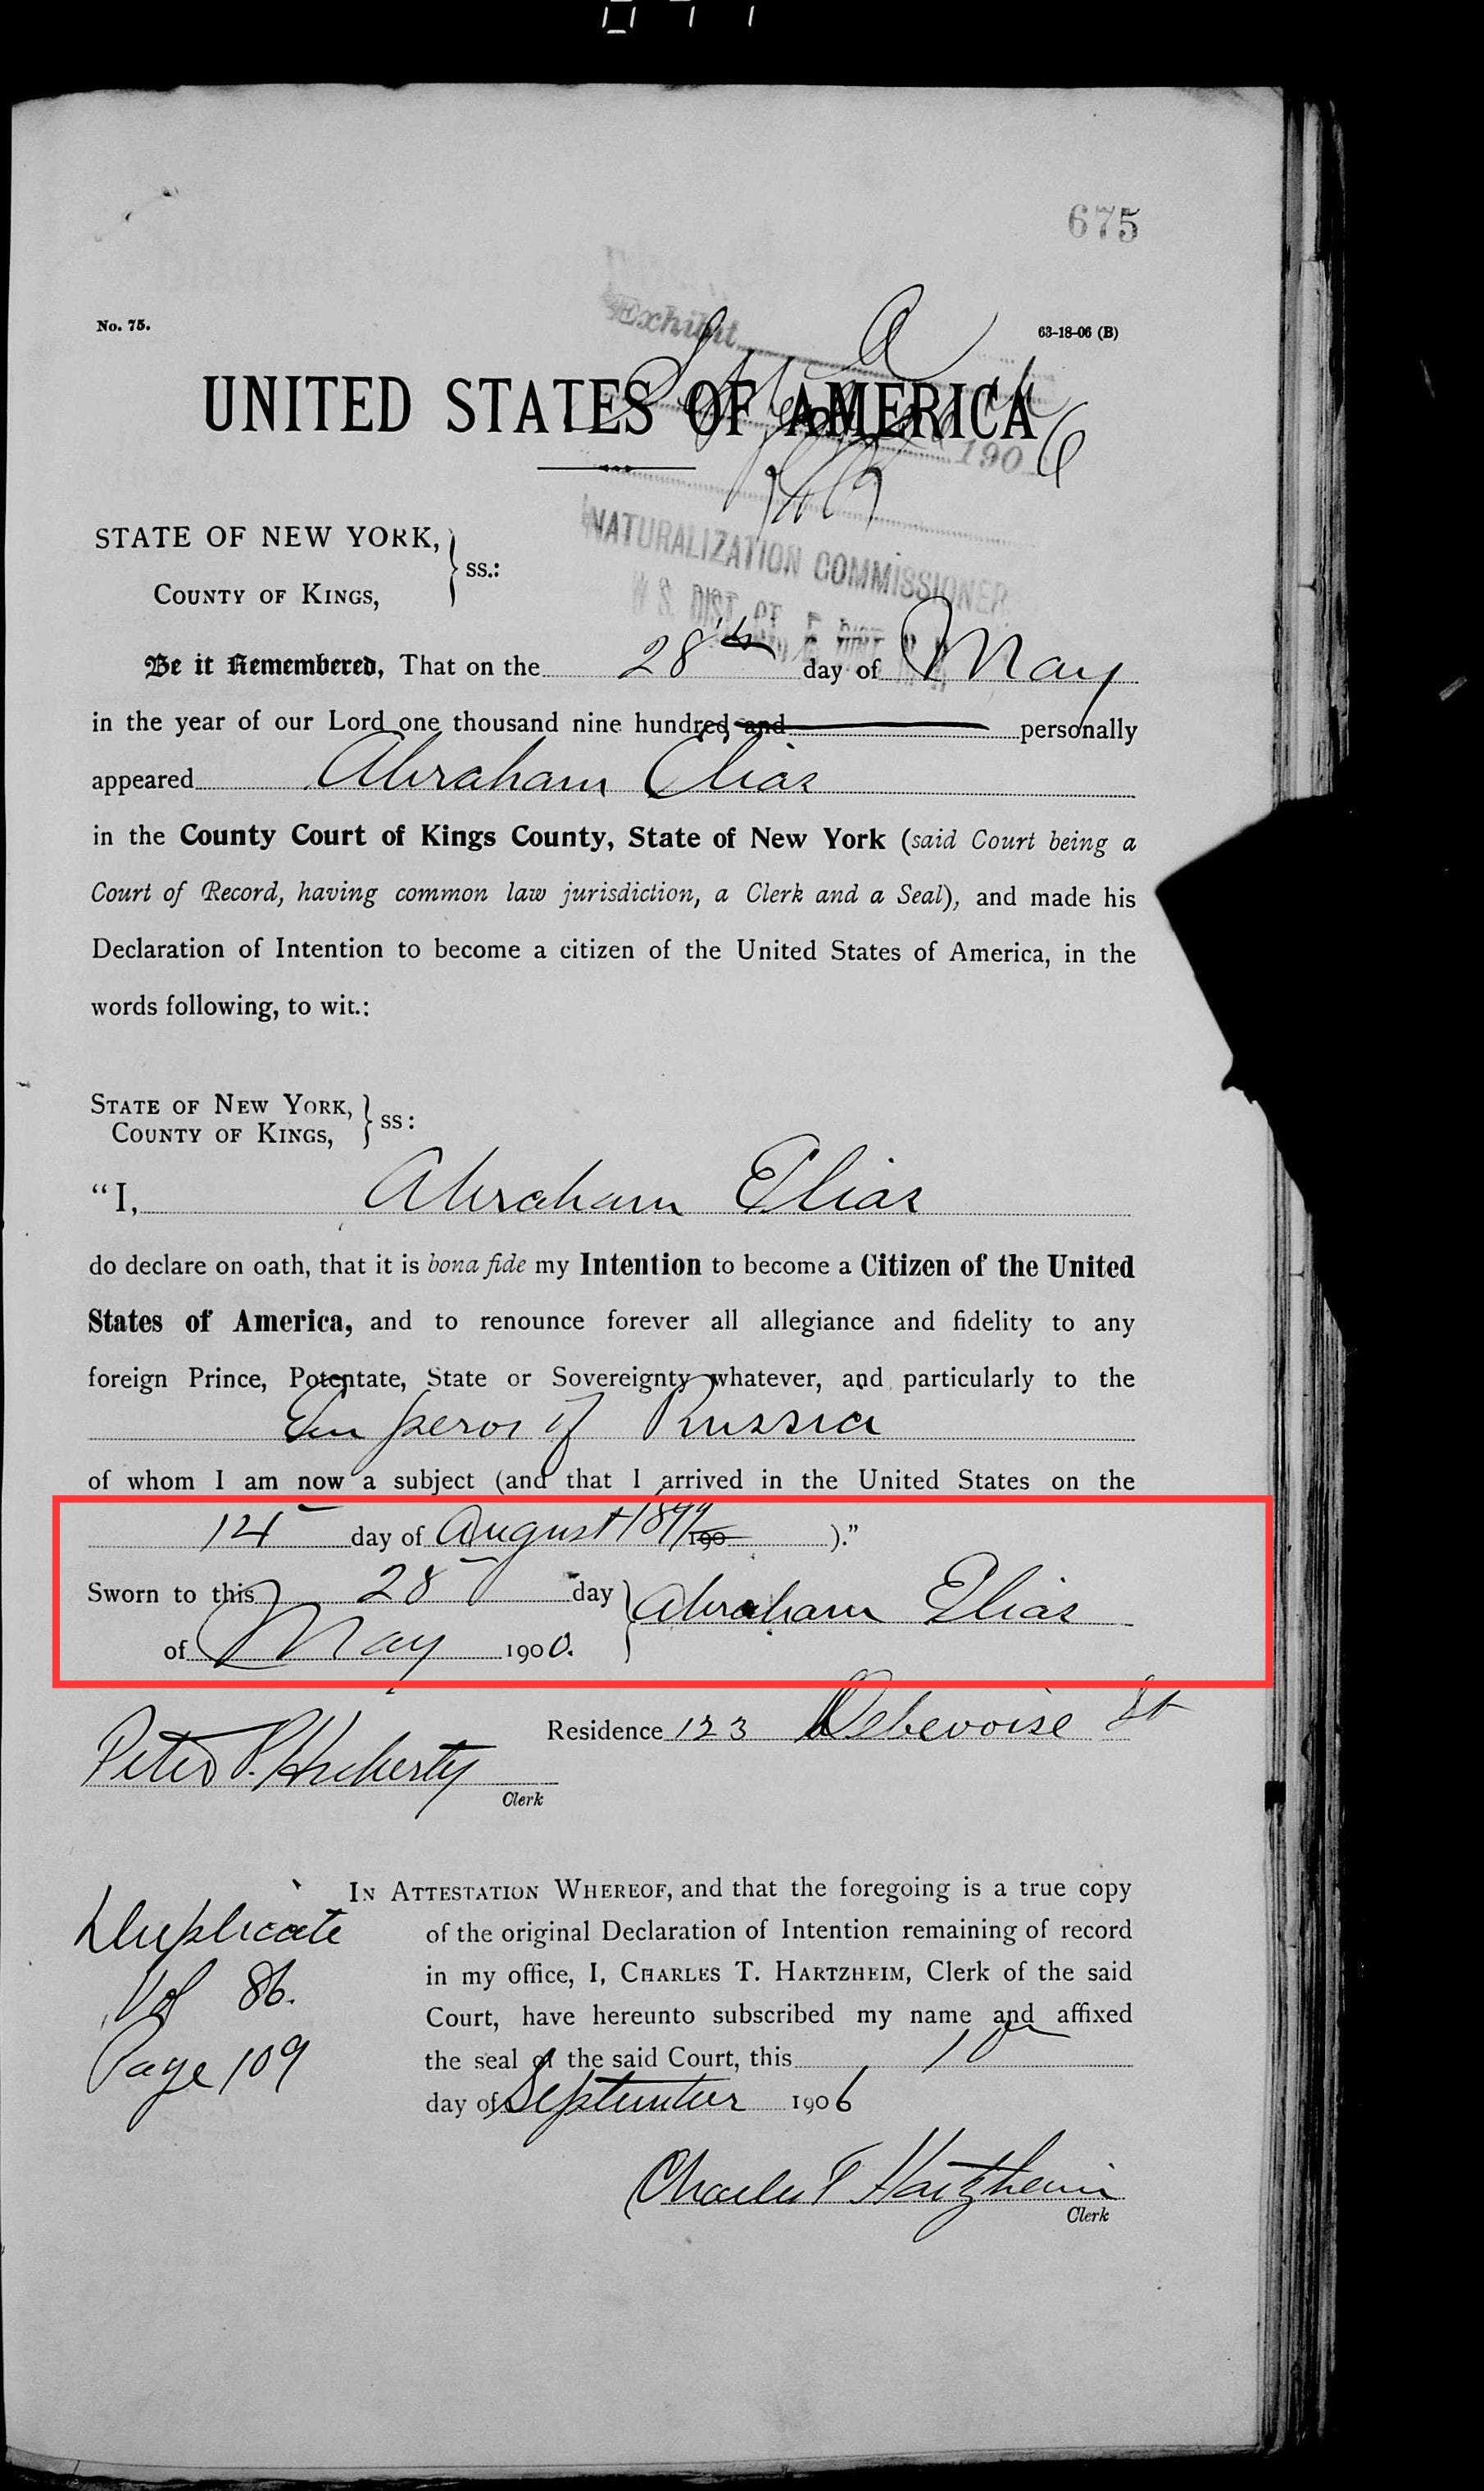 675
No. 75.
63-18-06 (B)
Exhibit A
UNITED STATES OF AMERICA
1906
NATURALIZATION COMMISSIONER
STATE OF NEW YORK,
COUNTY OF KINGS,
ss.:
U S. DIST. CT. E. DIST. N.Y.
Be it Remembered, That on the 28th day of May
in the year of our Lord one thousand nine hundred and personally
appeared Abraham Elias
in the County Court of Kings County, State of New York (said Court being a
Court of Record, having common law jurisdiction, a Clerk and a Seal), and made his
Declaration of Intention to become a citizen of the United States of America, in the
words following, to wit.:
STATE OF NEW YORK,
COUNTY OF KINGS,
ss:
“I, Abraham Elias
do declare on oath, that it is bona fide my Intention to become a Citizen of the United
States of America, and to renounce forever all allegiance and fidelity to any
foreign Prince, Potentate, State or Sovereignty whatever, and particularly to the
Emperor of Russia
of whom I am now a subject (and that I arrived in the United States on the
14 day of August 190 ).”
Sworn to this 28 day
of May 1900.
Abraham Elias
Residence 123 Debevoise St
Peter P. Huberty
Clerk
Duplicate
Vol 86.
Page 109
IN ATTESTATION WHEREOF, and that the foregoing is a true copy
of the original Declaration of Intention remaining of record
in my office, I, CHARLES T. HARTZHEIM, Clerk of the said
Court, have hereunto subscribed my name and affixed
the seal of the said Court, this 10
day of September 1906
Charles T Hartzheim
Clerk